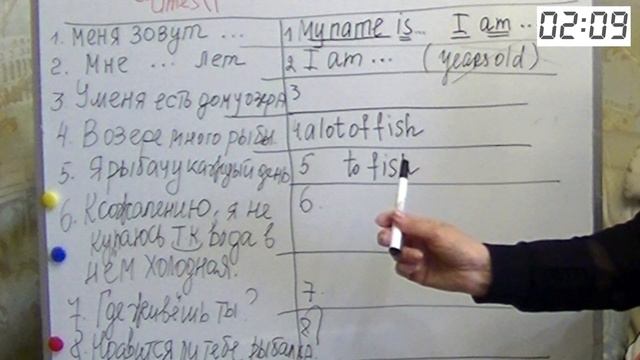 02:09
1. Меня зовут ...
1 My name is... I am ..
2. Мне ... лет
2 I am ... (years old)
3 У меня есть дом у озера
3
4. В озере много рыбы
4 a lot of fish
5. Я рыбачу каждый день
5 to fish
6. К сожалению, я не
купаюсь т.к вода в
нём холодная.
6.
7. Где живёшь ты?
7.
8. Нравится ли тебе рыбалка
8